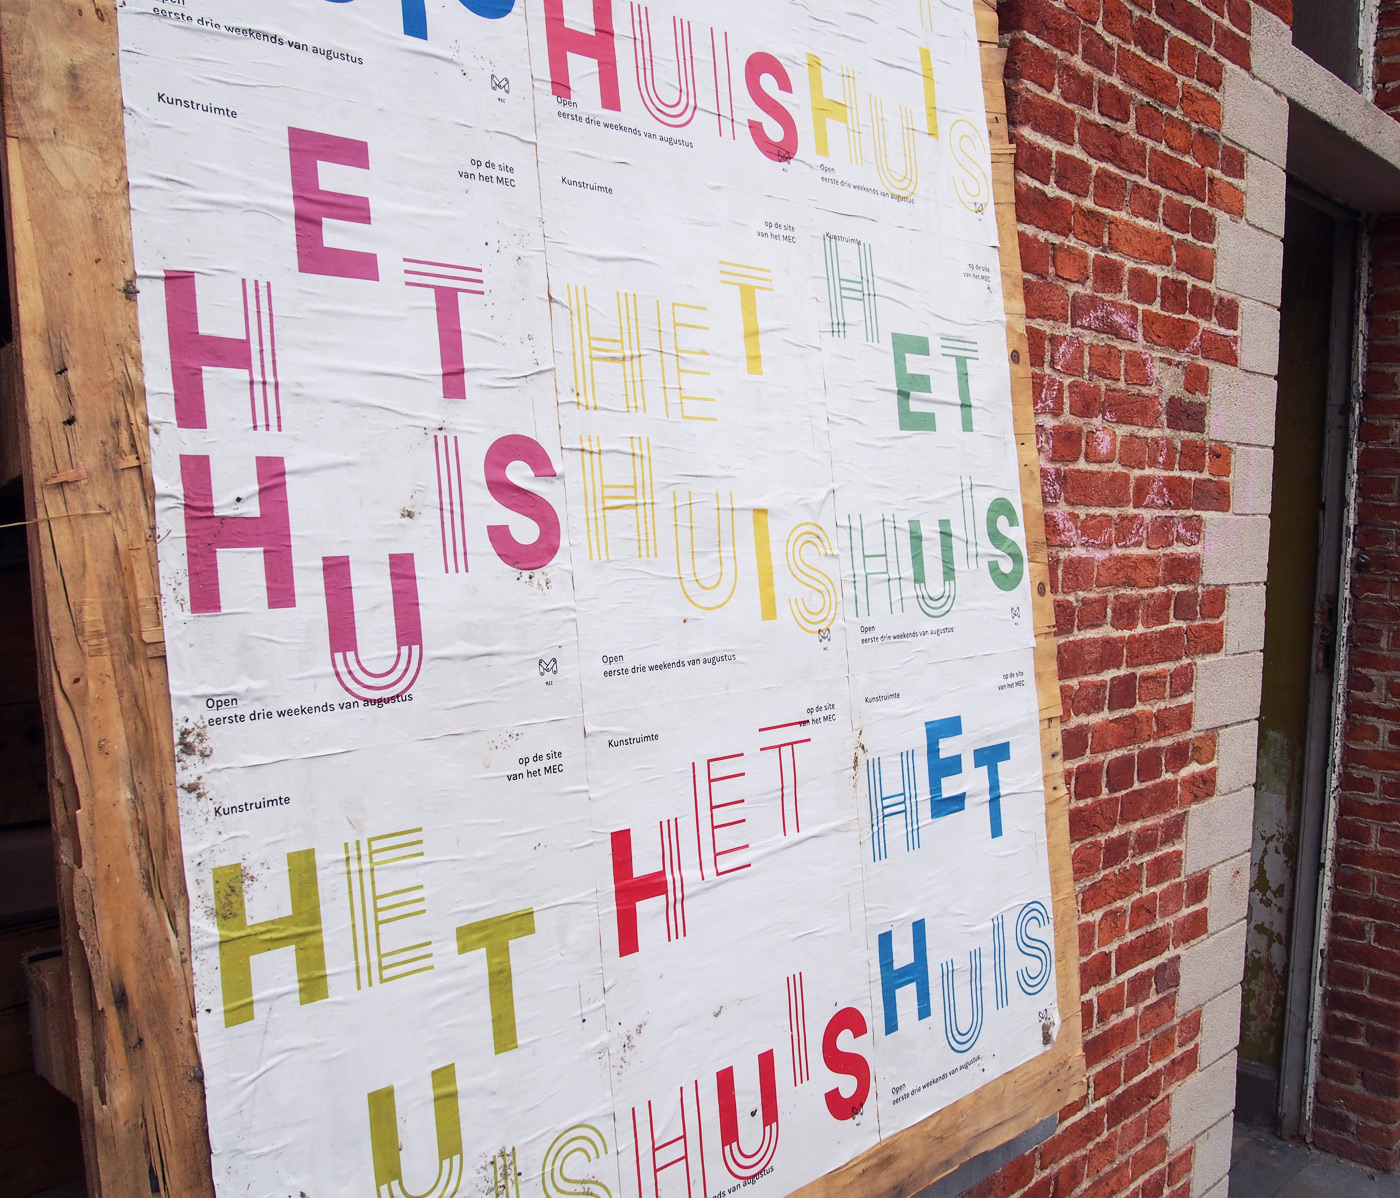 Open
eerste drie weekends van augustus
HUIS
Open
eerste drie weekends van augustus
MEC
HUIS
Open
eerste drie weekends van augustus
Kunstruimte
op de site
van het MEC
HET
HUIS
Open
eerste drie weekends van augustus
MEC
Kunstruimte
op de site
van het MEC
HET
HUIS
Open
eerste drie weekends van augustus
Kunstruimte
op de site
van het MEC
HET
HUIS
Open
eerste drie weekends van augustus
Kunstruimte
op de site
van het MEC
HET
UIS
Kunstruimte
op de site
van het MEC
HET
HUIS
van augustus
Kunstruimte
op de site
van het MEC
HET
HUIS
Open
eerste drie weekends van augustus